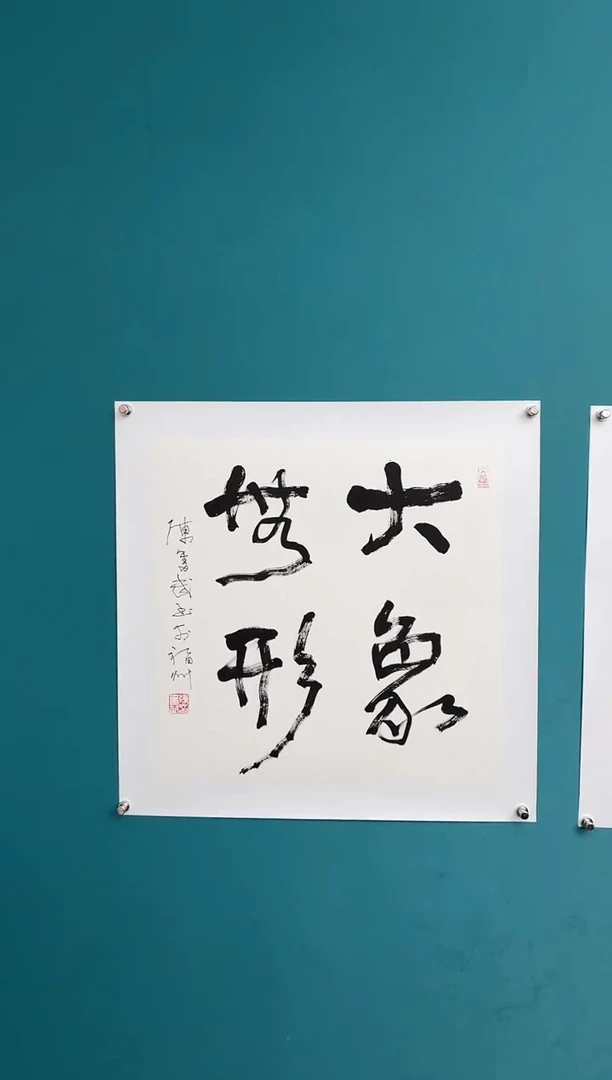 大象
無形
陳奮武書於福州